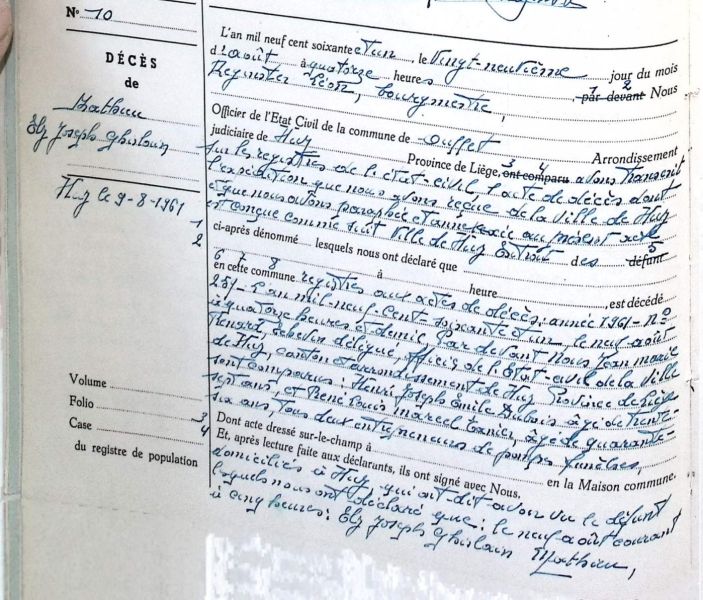 N° 10
DÉCÈS
de
Mathieu
Elz Joseph Ghislain
Huy le 9-8-1961
1
2
Volume
Folio
Case
3
4
du registre de population
L'an mil neuf cent soixante et un, le vingt-neuvième jour du mois
d'août à quatorze heures, par devant Nous
1 2
Léon, bourgmestre,
Officier de l'Etat Civil de la commune de Ouffet Arrondissement
judiciaire de Huy Province de Liège, ont comparu avons transcrit
3 4
sur les registres de l'état-civil l'acte de décès dont
l'expédition que nous avons reçue de la ville de Huy
et que nous avons paraphée et annexée au présent acte
est conçue comme suit Ville de Huy Extrait des
ci-après dénommé lesquels nous ont déclaré que défunt
5
à heure, est décédé
6 7 8
en cette commune registres aux actes de décès: année 1961 - N°
251 - L'an mil-neuf-cent-soixante et un, le neuf août
à quatorze heures et demie, par devant Nous Jean Marie
Renard, échevin délégué, officier de l'état-civil de la ville
de Huy, canton et arrondissement de Huy, Province de Liège
sont comparus: Henri Joseph Emile Dubois âgé de trente-
sept ans, et René Louis Marcel âgé de quarante-
six ans, tous deux entrepreneurs de pompes funèbres,
Dont acte dressé sur-le-champ à en la Maison commune.
Et, après lecture faite aux déclarants, ils ont signé avec Nous.
domiciliés à Huy qui ont dit avoir vu le défunt
lesquels nous ont déclaré que: le neuf août courant
à cinq heures: Elz Joseph Ghislain Mathieu,